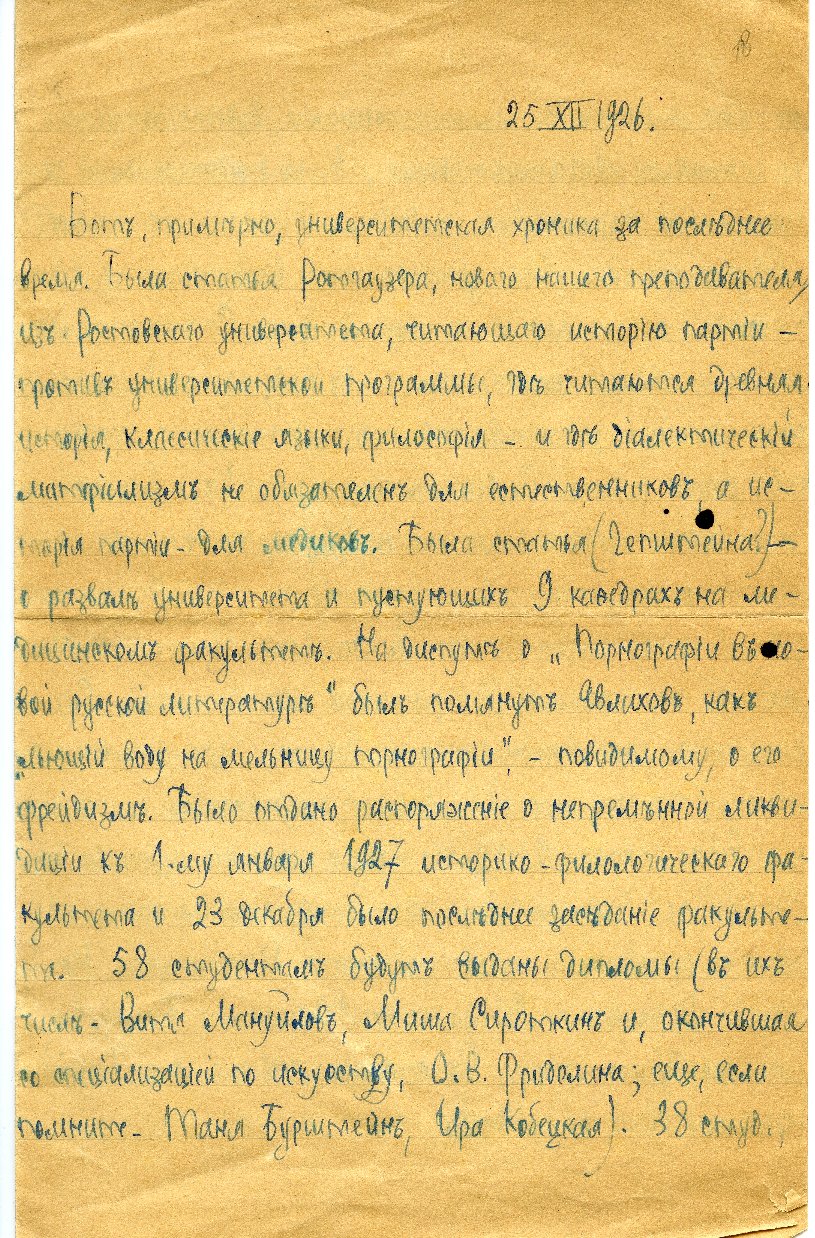 18
25 XII 1926.
Вотъ, примѣрно, университетская хроника за послѣднее
время. Была статья Ротгаузера, новаго нашего преподавателя,
изъ Ростовскаго университета, читающаго исторію партіи –
противъ университетской программы, гдѣ читаются древняя
исторія, классическіе языки, философія – и гдѣ діалектическій
матеріализмъ не обязателенъ для естественниковъ, а ис-
торія партіи – для медиковъ. Была статья (Гепштейна?) –
о развалѣ университета и пустующихъ 9 каѳедрахъ на ме-
дицинскомъ факультетѣ. На диспутѣ о „Порнографіи въ но-
вой русской литературѣ" былъ помянутъ Явлиховъ, какъ
„льющій воду на мельницу порнографіи", – повидимому, о его
фрейдизмѣ. Было отдано распоряженіе о непремѣнной ликви-
даціи къ 1-му января 1927 историко-филологическаго фа-
культета и 23 декабря было послѣднее засѣданіе факульте-
та. 58 студентамъ будутъ выданы дипломы (въ ихъ
числѣ – Витя Мануйловъ, Миша Сироткинъ и, окончившая
со спеціализаціей по искусству, О.В. Фриделина; еще, если
помните – Таня Бурштейнъ, Ира Кобецкая). 38 студ.,